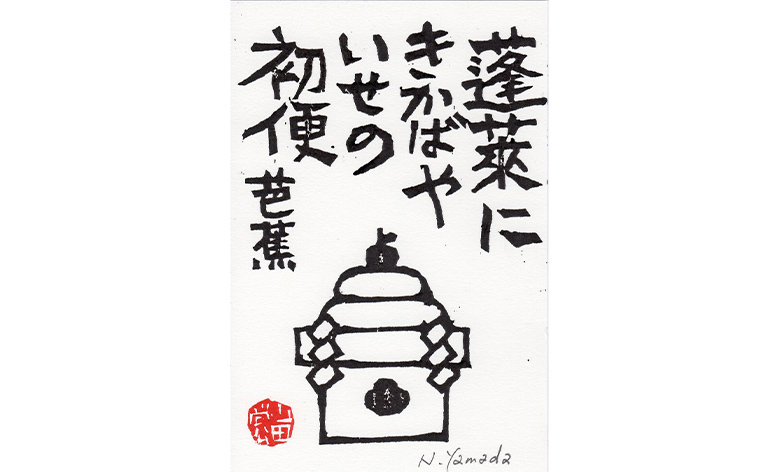 蓬莱に
きかばや
いせの
初便
芭蕉
N.Yamada